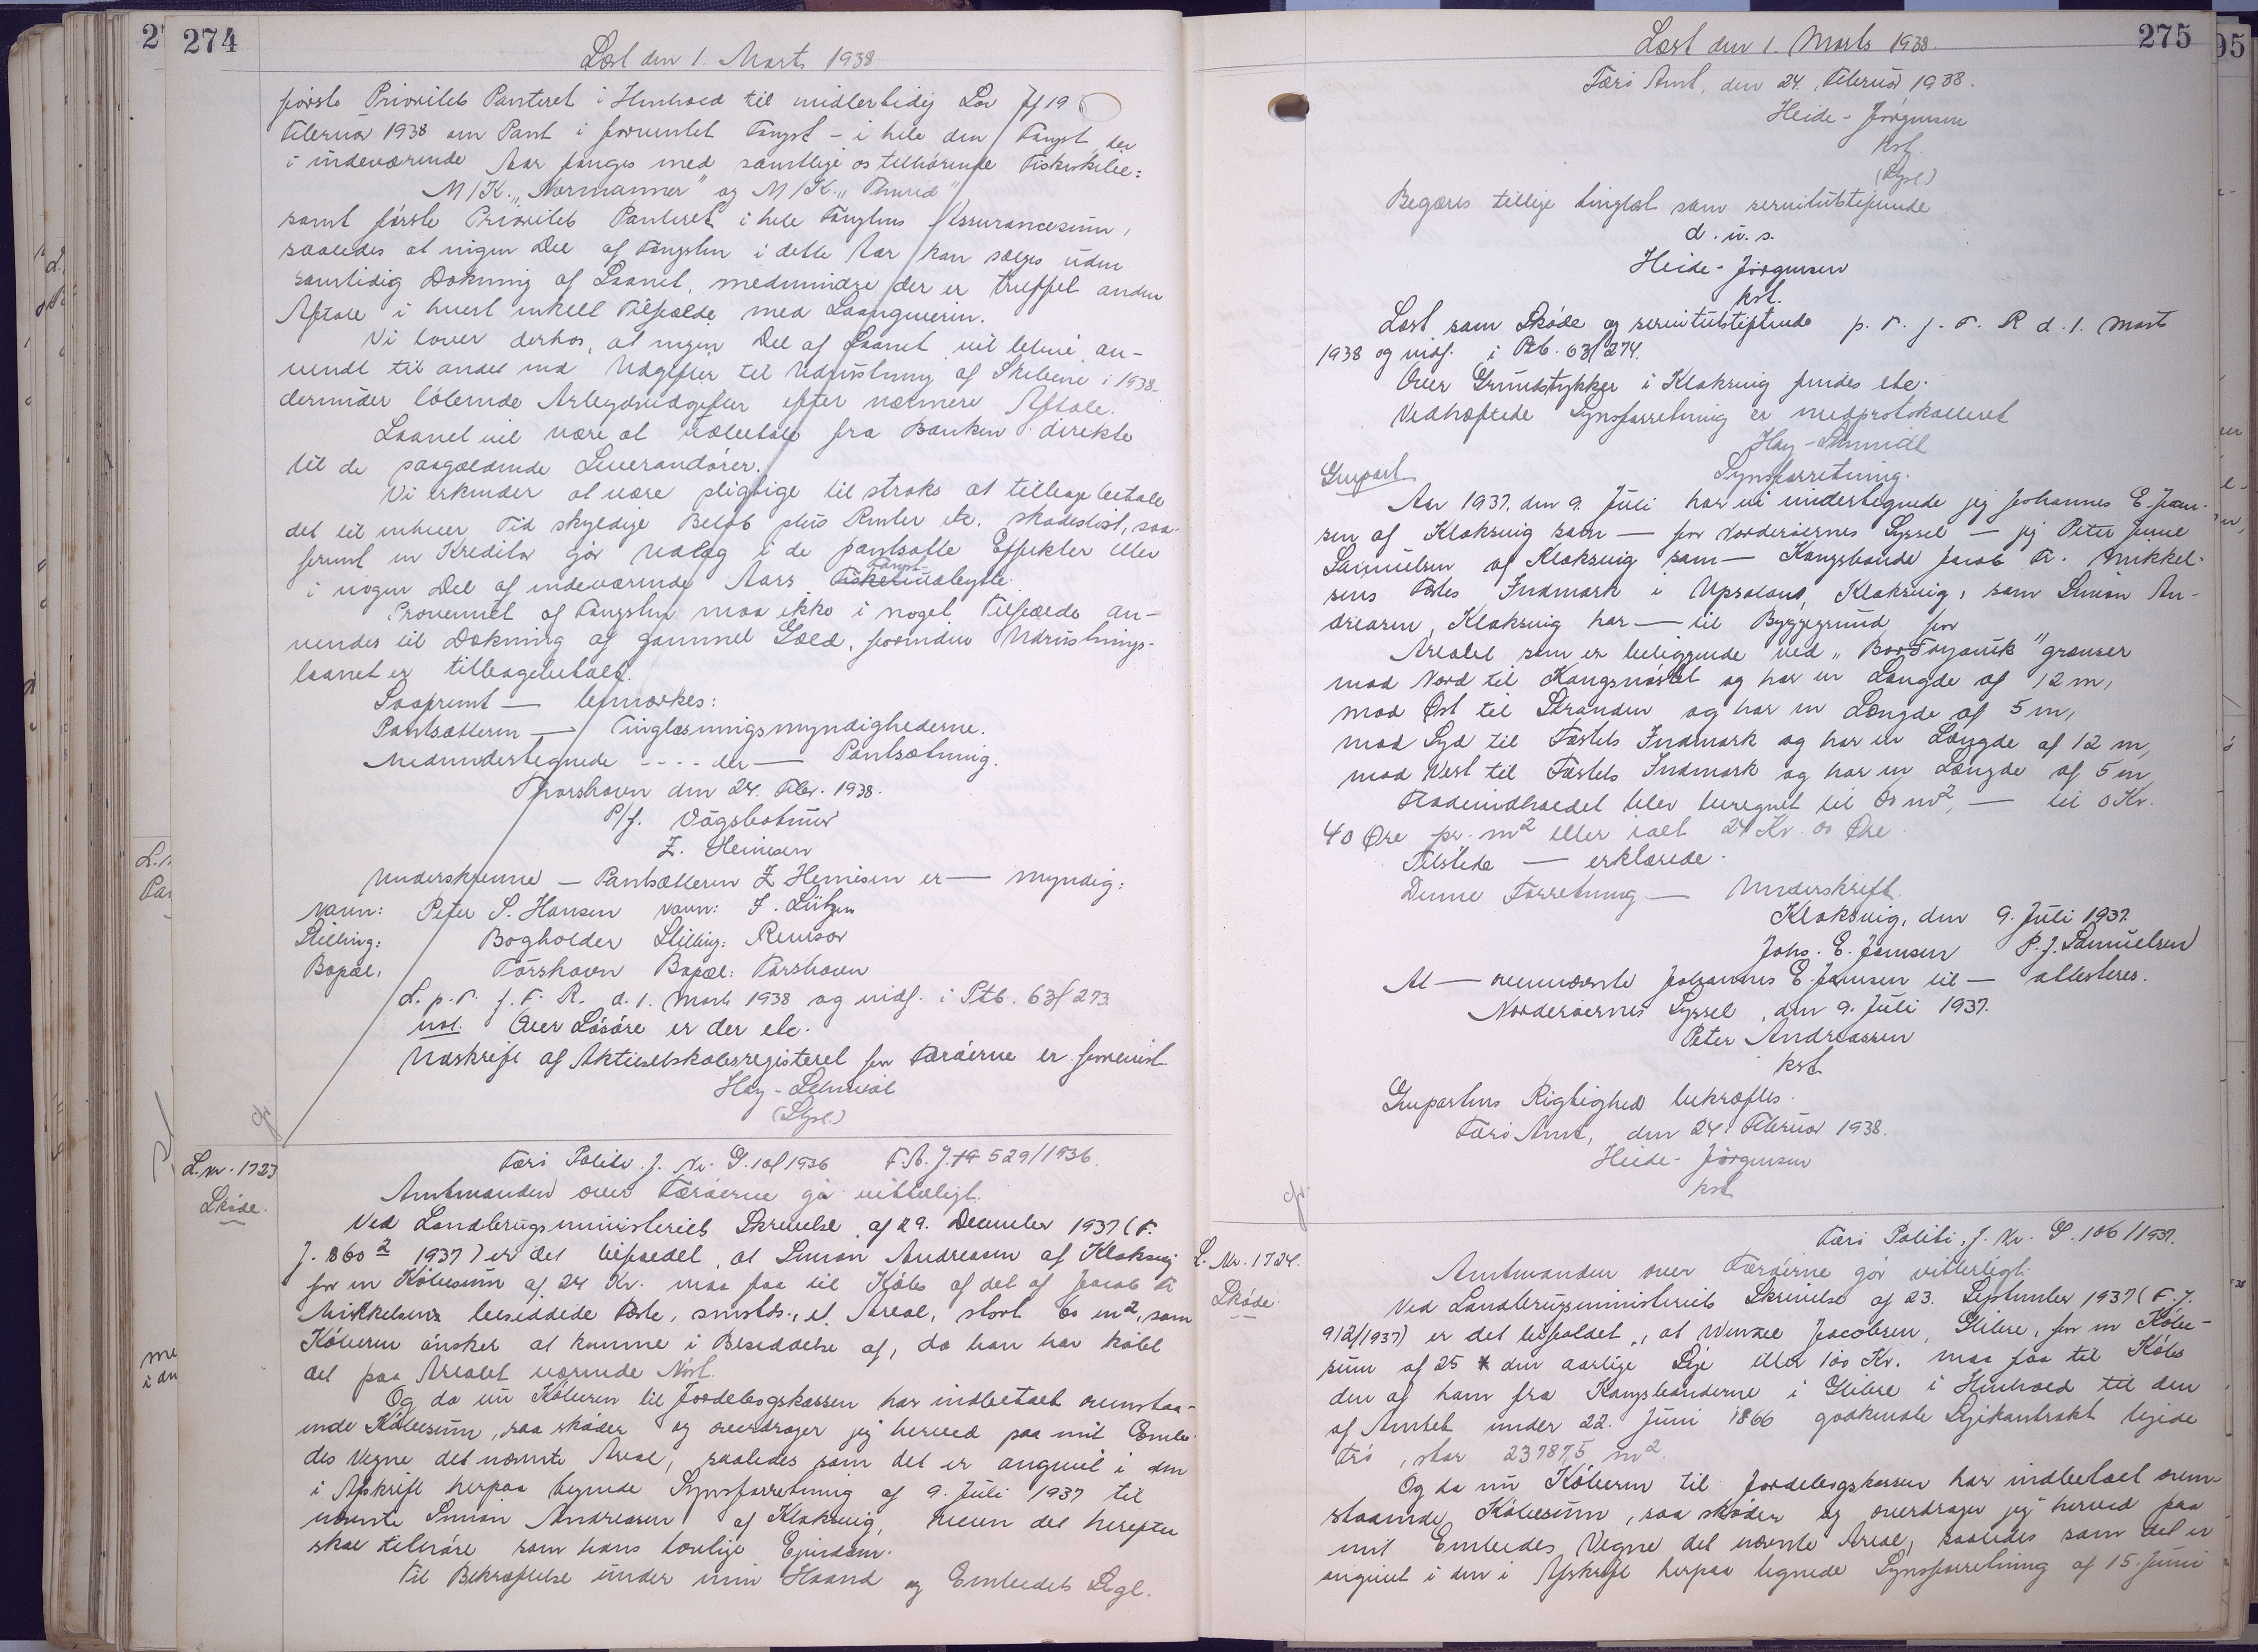 274
Læst den 1. Marts 1938
første Prioritets Panteret i Henhold til midlertidig Lov af 19
Februar 1938 om Pant i forventet Fangst - i hele den Fangst, der
i indeværende Aar fanges med samtlige os tilhørende Fiskeskibe:
M/K. „Normanner" og M/K. „Thurid"
samt første Prioritets Panteret i hele Fangstens Assurancesum,
saaledes at ingen Del af Fangsten i dette Aar kan sælges uden
samtidig Dækning af Laanet, medmindre der er truffet anden
Aftale i hvert enkelt Tilfælde med Laangiveren.
Vi lover derhos, at ingen Del af Laanet vil blive an-
vendt til andet end Udgifter til Udrustning af Skibene i 1938
derunder løbende Arbejdsudgifter efter nærmere Aftale.
Laanet vil være at udbetale fra Banken direkte
til de paagældende Leverandører.
Vi erkender at være pligtige til straks at tilbage betale
det til enhver Tid skyldige Beløb plus Renter etc. skadesløst, saa-
fremt en Kreditor gør Udlæg i de pantsatte Effekter eller
i nogen Del af indeværende Aars Fangst-udbytte.
Provenuet af Fangsten maa ikke i noget Tilfælde an-
vendes til Dækning af gammel Gæld, forinden Udrustnings-
laanet er tilbagebetalt.
Saafremt — bemærkes:
Pantsætteren — Tinglæsningsmyndighederne.
Medundertegnede - - - - der — Pantsætning.
Thorshavn den 24. Febr. 1938.
P/f. Vágsbotnur
Z. Heinesen
Underskrevne — Pantsætteren Z Heinesen er — myndig:
Navn: Peter S. Hansen Navn: J. Lützen
Stilling: Bogholder Stilling: Revisor
Bopæl: Tórshavn Bopæl: Tórshavn
L. p. T. f. F. R. d. 1. Marts 1938 og indf. i Ptb. 63/273
not. Over Løsøre er der etc.
Udskrift af Aktieselskabsregisteret for Færøerne er forevist
Hay-Schmidt
(Sysl.)
L. nr. 1723
Skøde.
Færø Politi. J. Nr. G. 101/1936 F. A. J. 529/1936.
Amtmanden over Færøerne gør vitterligt.
Ved Landbrugsministeriets Skrivelse af 29. December 1937 (F.
J. 860² 1937) er det tilfaldet, at Simon Andreasen af Klaksvig
for en Købesum af 24 Kr. maa faa til Købs af det af Jacob Fr
Mikkelsens besiddede Fæste, smstds., et Areal, stort 60 m², som
Køberen ønsker at komme i Besiddelse af, da han har købt
det paa Arealet værende Nøst.
Og da nu Køberen til Jordebogskassen har indbetalt ovenstaa-
ende Købesum, saa skøder og overdrager jeg herved paa mit Embe-
des Vegne det nævnte Areal, saaledes som det er angivet i den
i Afskrift herpaa tegnede Synsforretning af 9. Juli 1937 til
nævnte Simon Andreasen af Klaksvig, hvem det herefter
skal tilhøre som hans lovlige Ejendom.
Til Bekræftelse under min Haand og Embedets Segl.
275
Læst den 1. Marts 1938.
Færø Amt, den 24. Februar 1938.
Heide-Jørgensen
kst.
(Sysl.)
Begæres tillige tinglæst som servitutstiftende
d. u. s.
Heide-Jørgensen
kst.
Læst som Skøde og servitutstiftende p. T. f. F. R d. 1. Marts
1938 og indf. i Ptb. 63/274.
Over Grundstykker i Klaksvig findes etc.
Vedhæftede Synsforretning er medprotokolleret
Hay-Schmidt
Genpart Synsforretning.
Aar 1937, den 9. Juli har vi undertegnede jeg Johannes E. Joen-
sen af Klaksvig som — for Norderøernes Syssel — jeg Peter June
Samuelsen af Klaksvig som — Kongsbonde Jacob Fr. Mikkel-
sens Fæstes Indmark i Uppsalund, Klaksvig, som Simon An-
dreasen, Klaksvig har — til Byggegrund for
Arealet som er beliggende ved „Borðoyavík" grænser
mod Nord til Kongsnøstet og har en Længde af 12 m,
mod Øst til Stranden og har en Længde af 5 m,
mod Syd til Fæstets Indmark og har en Længde af 12 m,
mod Vest til Fæstets Indmark og har en Længde af 5 m,
Fladeindholdet blev beregnet til 60 m², — til 0 Kr.
40 Øre pr. m² eller ialt 24 Kr. 00 Øre.
Tilstede — erklærede.
Denne Forretning — Underskrift.
Klaksvig, den 9. Juli 1937.
Johs. E. Joensen P. J. Samuelsen
At — ovennævnte Johannes E. Joensen til — attesteres.
Norderøernes Syssel, den 9. Juli 1937.
Peter Andreassen
kst.
Genpartens Rigtighed bekræftes.
Færø Amt, den 24. Februar 1938.
Heide-Jørgensen
kst.
L. Nr. 1724.
Skøde
Færø Politi, J. Nr. G. 106/1937.
Amtmanden over Færøerne gør vitterligt.
Ved Landbrugsministeriets Skrivelse af 23. September 1937 (F. J.
912/1937) er det tilfaldet, at Wenzel Jacobsen, Glibre, for en Købe-
sum af 25 × den aarlige Leje eller 100 Kr. maa faa til Købs
den af ham fra Kongsbønderne i Glibre i Henhold til den
af Amtet under 22. Juni 1866 godkendte Lejekontrakt lejede
Trø, stor 23787,5 m².
Og da nu Køberen til Jordebogskassen har indbetalt oven-
staaende Købesum, saa skøder og overdrager jeg herved paa
mit Embedes Vegne det nævnte Areal, saaledes som det er
angivet i den i Afskrift herpaa tegnede Synsforretning af 15. Juni